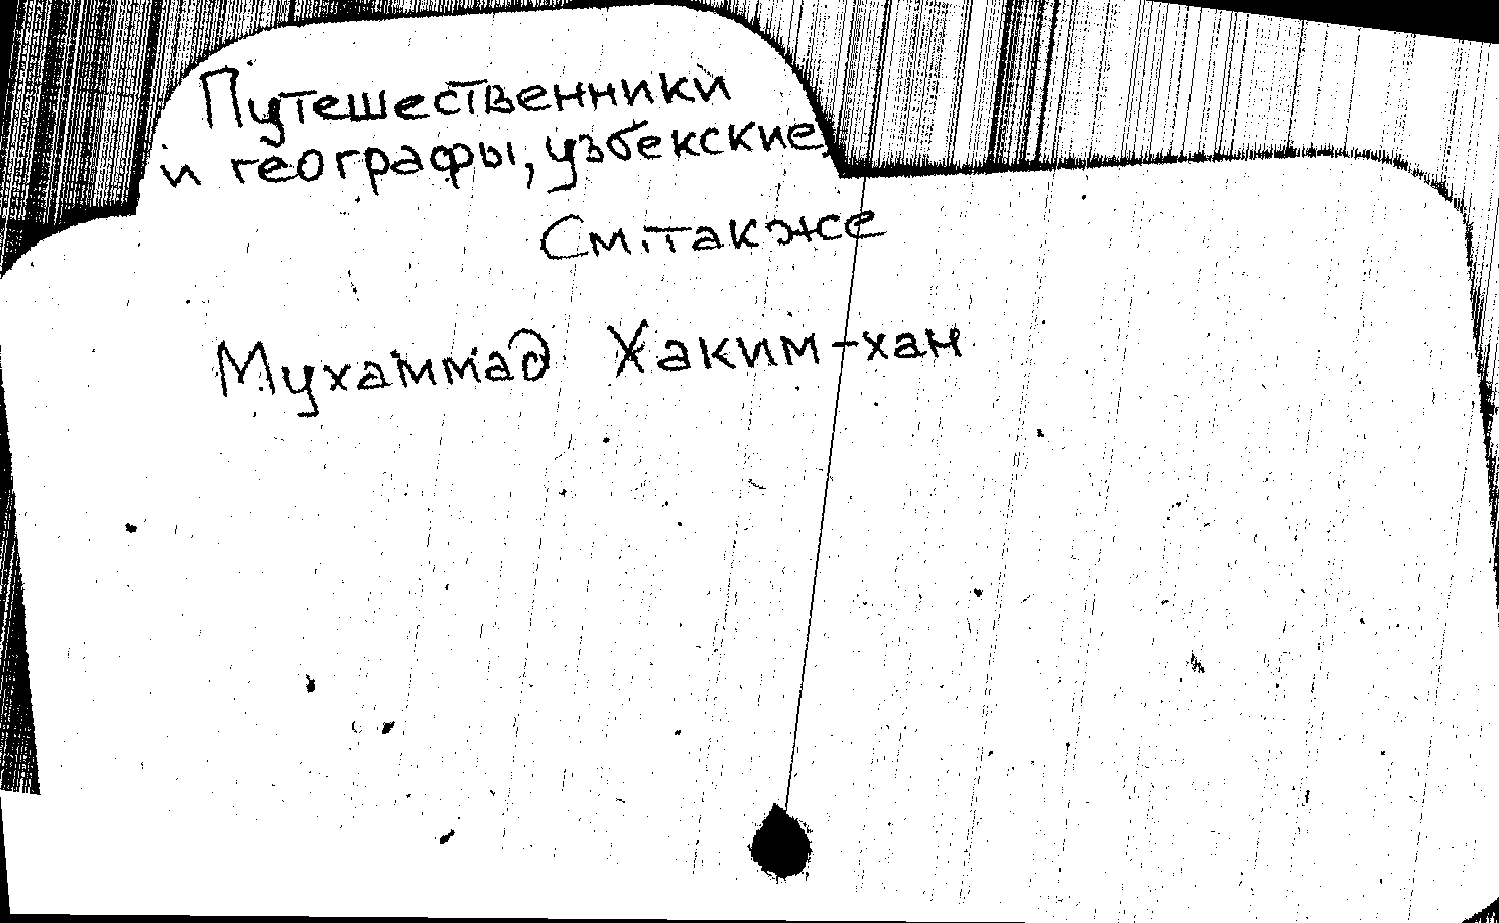 Путешественники
и географы, узбекские,
См. также
Мухаммад Хаким-хан